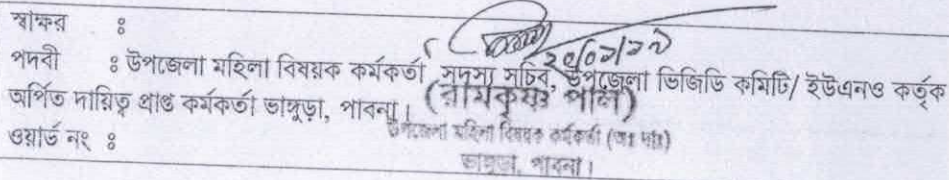 স্বাক্ষর ঃ
২০/০১/১৯
পদবী ঃ উপজেলা মহিলা বিষয়ক কর্মকর্তা সদস্য সচিব, উপজেলা ভিজিডি কমিটি/ ইউএনও কর্তৃক
অর্পিত দায়িত্ব প্রাপ্ত কর্মকর্তা ভাঙ্গুড়া, পাবনা।
(রামকৃষ্ণ পাল)
উপজেলা মহিলা বিষয়ক কর্মকর্তা (অঃ দাঃ)
ভাঙ্গুড়া, পাবনা।
ওয়ার্ড নং ঃ